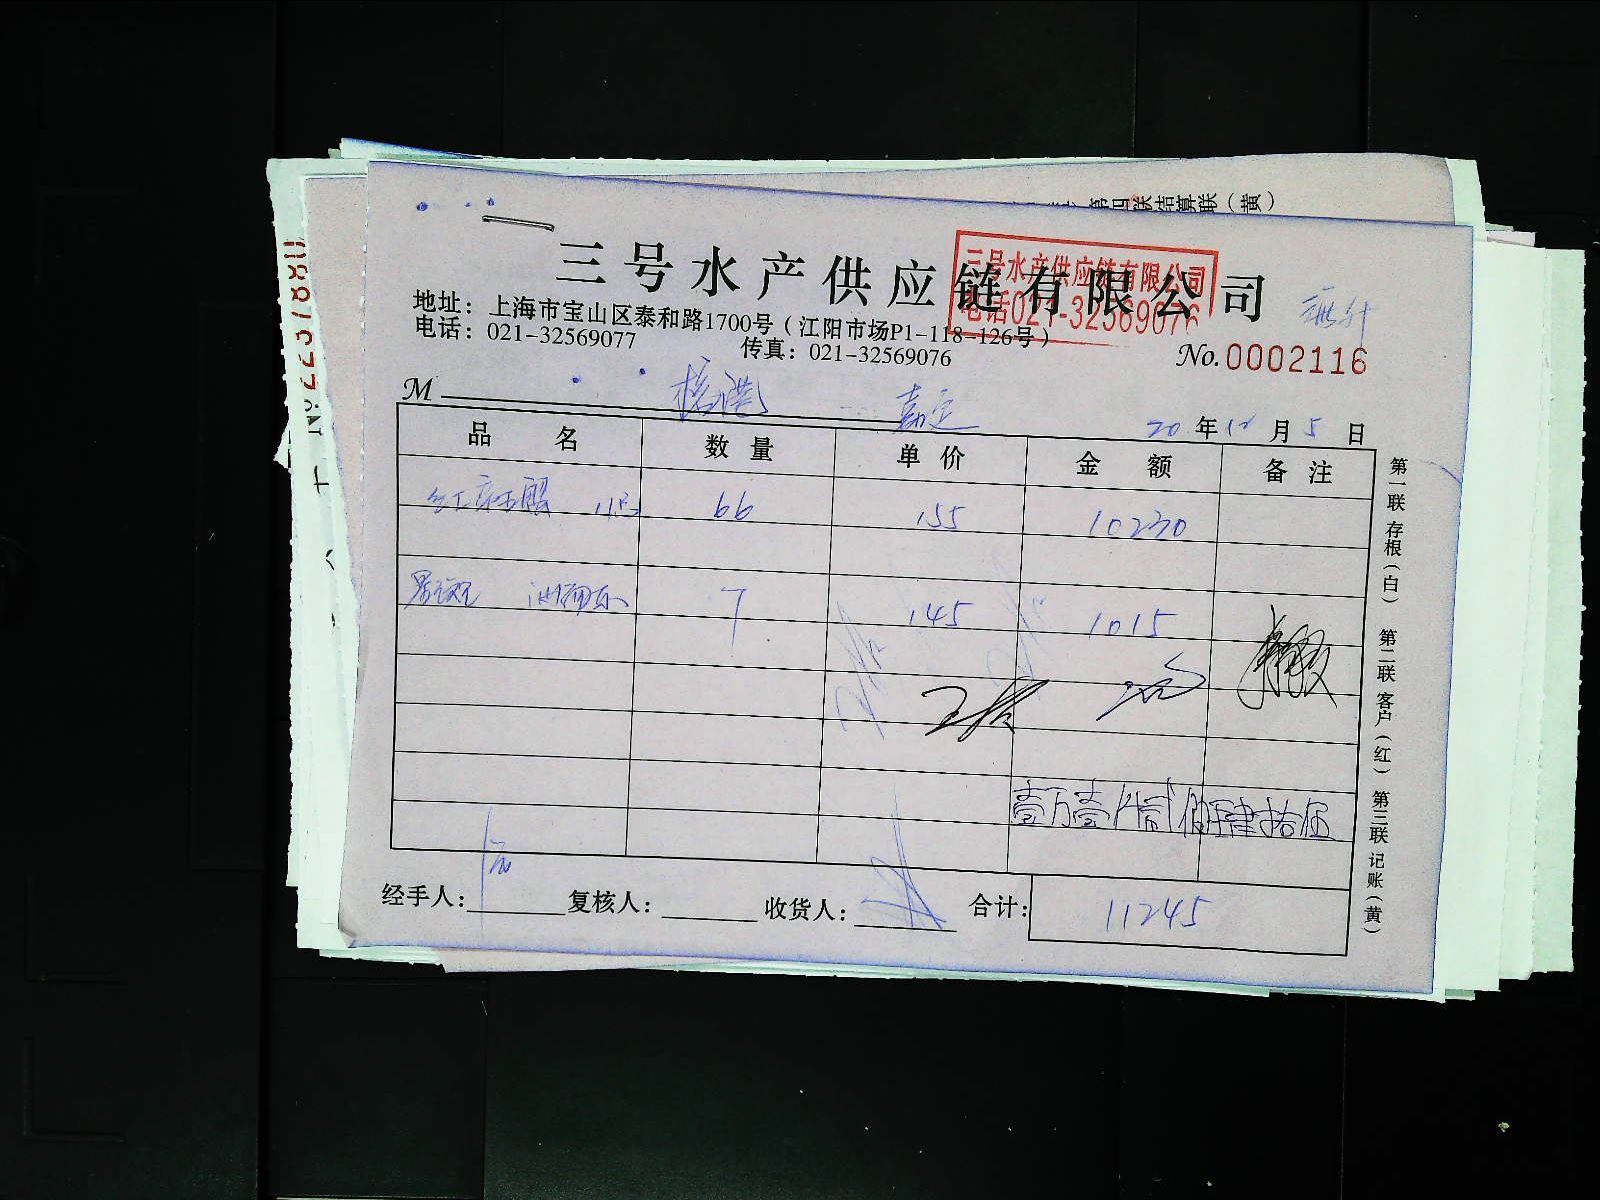 第四联结算联（黄）
三号水产供应链有限公司
三号水产供应链有限公司
电话021-32569076
地址：上海市宝山区泰和路1700号（江阳市场P1-118-126号）
电话：021-32569077 传真：021-32569076
No.0002116
M 嘉定
20年10月5日
品名 数量 单价 金额 备注
66 155 10230
7 145 1015
壹万壹仟贰佰肆拾伍
经手人： 复核人： 收货人： 合计：11245
第一联存根（白） 第二联客户（红） 第三联记账（黄）